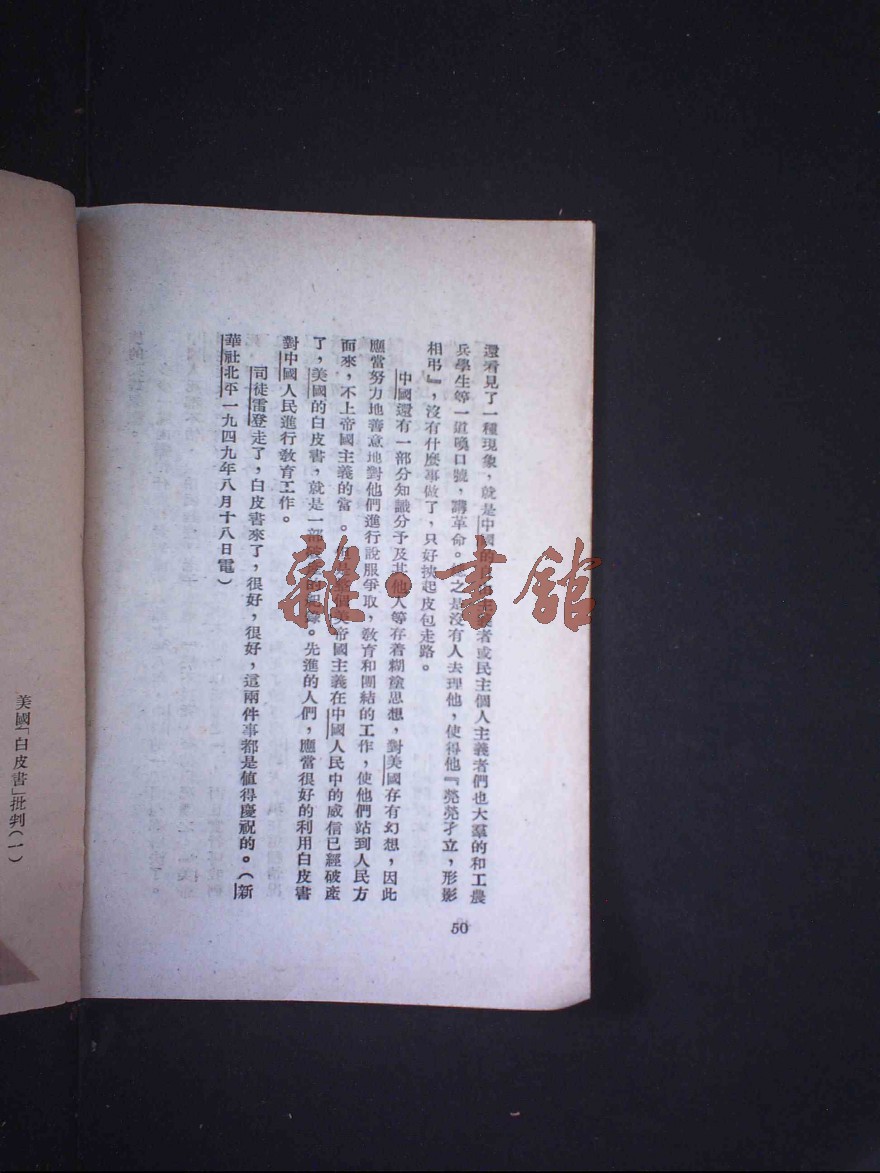 還看見了一種現象，就是中國的自由主義者或民主個人主義者們也大羣的和工農
兵學生等一道喚口號，講革命。總之是沒有人去理他，使得他『煢煢孑立，形影
相弔』，沒有什麼事做了，只好挾起皮包走路。
中國還有一部分知識分予及其他人等存着糊塗思想，對美國存有幻想，因此
應當努力地善意地對他們進行說服爭取，教育和團結的工作，使他們站到人民方
而來，不上帝國主義的當。但是整個美帝國主義在中國人民中的威信已經破產
了，美國的白皮書，就是一部破產的記錄。先進的人們，應當很好的利用白皮書
對中國人民進行教育工作。
司徒雷登走了，白皮書來了，很好，很好，這兩件事都是値得慶祝的。（新
華社北平一九四九年八月十八日電）
50
美國「白皮書」批判（一）
雜·書館